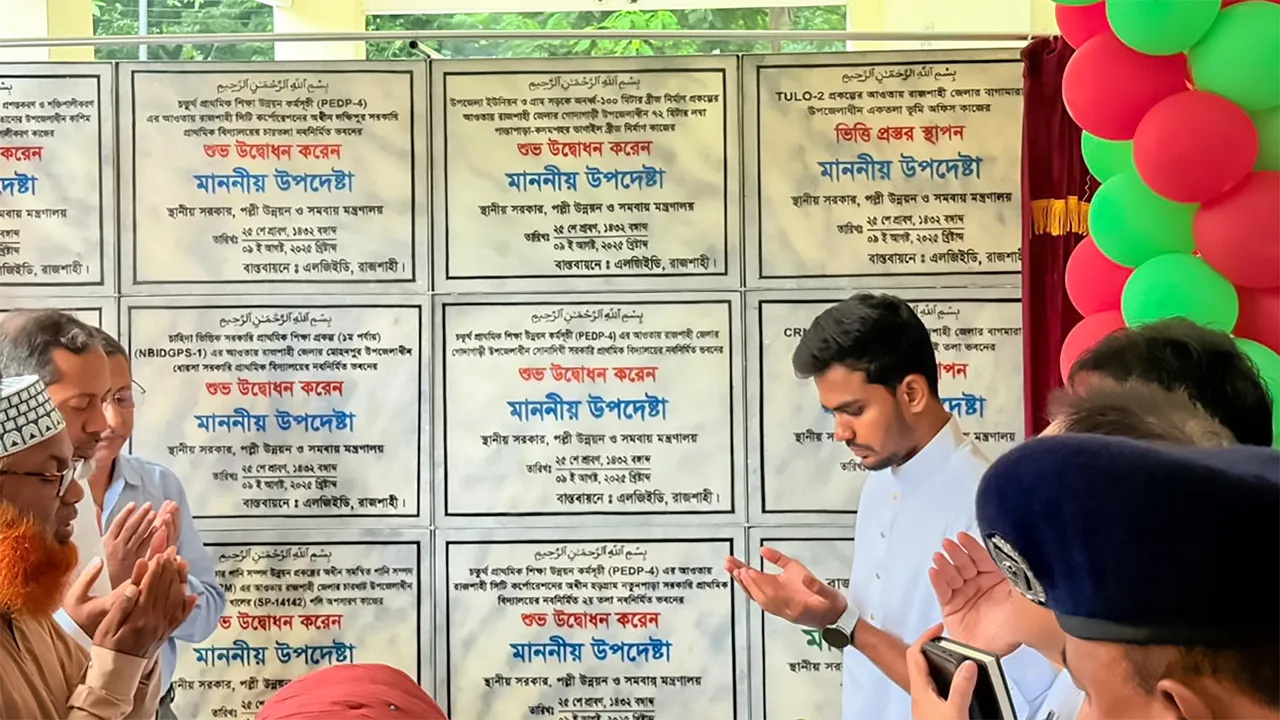 প্রশস্তকরণ ও শক্তিশালীকরণ
بِسْمِ اللَّهِ الرَّحْمَٰنِ الرَّحِيمِ
চতুর্থ প্রাথমিক শিক্ষা উন্নয়ন কর্মসূচী (PEDP-4)
এর আওতায় রাজশাহী সিটি কর্পোরেশনের অধীন লক্ষিপুর সরকারি
প্রাথমিক বিদ্যালয়ের চারতলা নবনির্মিত ভবনের
শুভ উদ্বোধন করেন
মাননীয় উপদেষ্টা
স্থানীয় সরকার, পল্লী উন্নয়ন ও সমবায় মন্ত্রণালয়
তারিখঃ ২৫ শে শ্রাবণ, ১৪৩২ বঙ্গাব্দ
০৯ ই আগষ্ট, ২০২৫ খ্রিষ্টাব্দ
বাস্তবায়নে ঃ এলজিইডি, রাজশাহী।
بِسْمِ اللَّهِ الرَّحْمَٰنِ الرَّحِيمِ
উপজেলা ইউনিয়ন ও গ্রাম সড়কে অনুর্ধ্ব-১০০ মিটার ব্রীজ নির্মাণ প্রকল্পের
আওতায় রাজশাহী জেলার গোদাগাড়ী উপজেলাধীন ৭২ মিটার লম্বা
ব্রীজ নির্মাণ কাজের
শুভ উদ্বোধন করেন
মাননীয় উপদেষ্টা
স্থানীয় সরকার, পল্লী উন্নয়ন ও সমবায় মন্ত্রণালয়
তারিখঃ ২৫ শে শ্রাবণ, ১৪৩২ বঙ্গাব্দ
০৯ ই আগষ্ট, ২০২৫ খ্রিষ্টাব্দ
বাস্তবায়নে ঃ এলজিইডি, রাজশাহী।
بِسْمِ اللَّهِ الرَّحْمَٰنِ الرَّحِيمِ
TULO-2 প্রকল্পের আওতায় রাজশাহী জেলার বাগমারা
উপজেলাধীন একতলা ভূমি অফিস কাজের
ভিত্তি প্রস্তর স্থাপন
মাননীয় উপদেষ্টা
স্থানীয় সরকার, পল্লী উন্নয়ন ও সমবায় মন্ত্রণালয়
তারিখঃ ২৫ শে শ্রাবণ, ১৪৩২ বঙ্গাব্দ
০৯ ই আগষ্ট, ২০২৫ খ্রিষ্টাব্দ
বাস্তবায়নে ঃ এলজিইডি,
بِسْمِ اللَّهِ الرَّحْمَٰنِ الرَّحِيمِ
চাহিদা ভিত্তিক সরকারি প্রাথমিক শিক্ষা প্রকল্প (১ম পর্যায়)
(NBIDGPS-1) এর আওতায় রাজশাহী জেলার মোহনপুর উপজেলাধীন
ধোরসা সরকারি প্রাথমিক বিদ্যালয়ের নবনির্মিত ভবনের
শুভ উদ্বোধন করেন
মাননীয় উপদেষ্টা
স্থানীয় সরকার, পল্লী উন্নয়ন ও সমবায় মন্ত্রণালয়
তারিখঃ ২৫ শে শ্রাবণ, ১৪৩২ বঙ্গাব্দ
০৯ ই আগষ্ট, ২০২৫ খ্রিষ্টাব্দ
বাস্তবায়নে ঃ এলজিইডি, রাজশাহী।
بِسْمِ اللَّهِ الرَّحْمَٰنِ الرَّحِيمِ
চতুর্থ প্রাথমিক শিক্ষা উন্নয়ন কর্মসূচী (PEDP-4) এর আওতায় রাজশাহী জেলার
গোদাগাড়ী উপজেলাধীন সোনাদিঘী সরকারি প্রাথমিক বিদ্যালয়ের নবনির্মিত ভবনের
শুভ উদ্বোধন করেন
মাননীয় উপদেষ্টা
স্থানীয় সরকার, পল্লী উন্নয়ন ও সমবায় মন্ত্রণালয়
তারিখঃ ২৫ শে শ্রাবণ, ১৪৩২ বঙ্গাব্দ
০৯ ই আগষ্ট, ২০২৫ খ্রিষ্টাব্দ
বাস্তবায়নে ঃ এলজিইডি, রাজশাহী।
রাজশাহী জেলার বাগমারা
তলা ভবনের
بِسْمِ اللَّهِ الرَّحْمَٰنِ الرَّحِيمِ
পানি সম্পদ উন্নয়ন প্রকল্পের অধীন সমন্বিত পানি সম্পদ
এর আওতায় রাজশাহী জেলার চারঘাট উপজেলাধীন
খালের (SP-14142) পলি অপসারণ কাজের
শুভ উদ্বোধন করেন
মাননীয় উপদেষ্টা
স্থানীয় সরকার, পল্লী উন্নয়ন ও সমবায় মন্ত্রণালয়
بِسْمِ اللَّهِ الرَّحْمَٰنِ الرَّحِيمِ
চতুর্থ প্রাথমিক শিক্ষা উন্নয়ন কর্মসূচী (PEDP-4) এর আওতায়
রাজশাহী সিটি কর্পোরেশনের অধীন হড়গ্রাম নতুনপাড়া সরকারি প্রাথমিক
বিদ্যালয়ের নবনির্মিত ২য় তলা নবনির্মিত ভবনের
শুভ উদ্বোধন করেন
মাননীয় উপদেষ্টা
স্থানীয় সরকার, পল্লী উন্নয়ন ও সমবায় মন্ত্রণালয়
তারিখঃ ২৫ শে শ্রাবণ, ১৪৩২ বঙ্গাব্দ
০৯ ই আগষ্ট, ২০২৫ খ্রিষ্টাব্দ